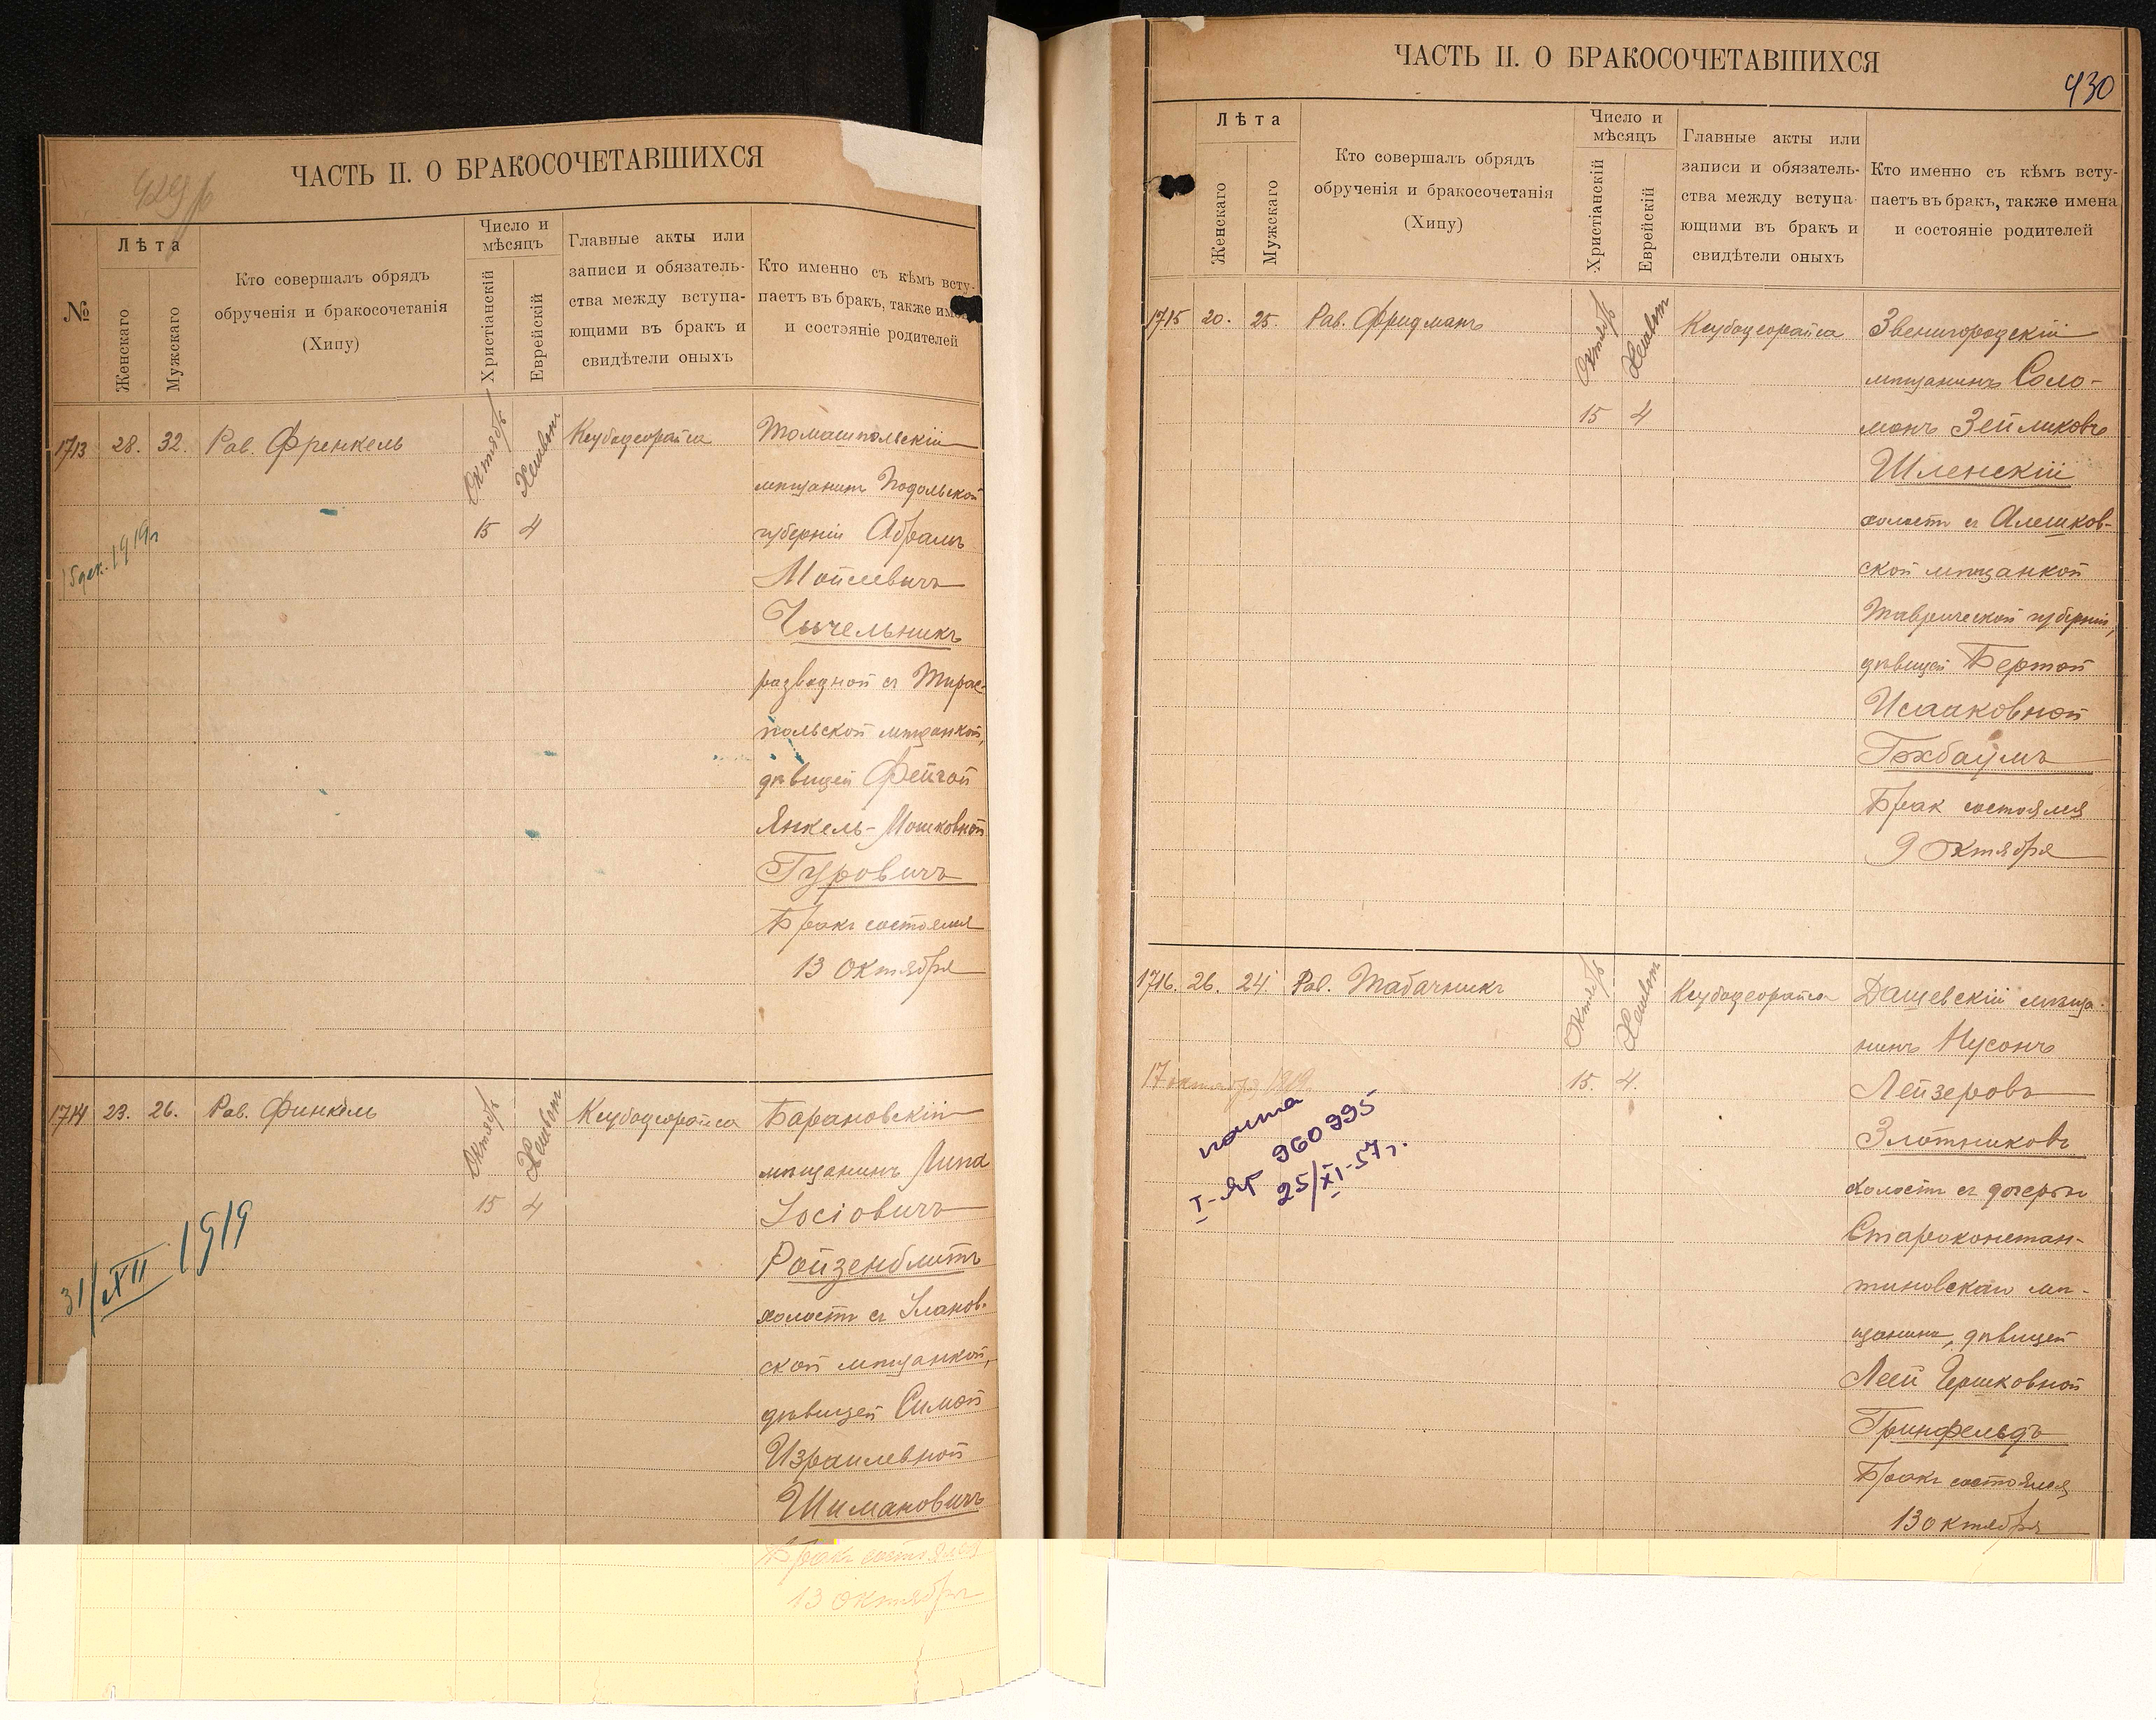 ЧАСТЬ II. О БРАКОСОЧЕТАВШИХСЯ
№
Лѣта
Женскаго
Мужскаго
Кто совершалъ обрядъ
обрученія и бракосочетанія
(Хипу)
Число и
мѣсяцъ
Христіанскій
Еврейскій
Главные акты или
записи и обязатель-
ства между вступа-
ющими въ бракъ и
свидѣтели оныхъ
Кто именно съ кѣмъ всту-
паетъ въ бракъ, также имена
и состояніе родителей
1713 28. 32. Рав. Френкель
Октябрь
Хешван
15 4
Кеубодеорайса
Томашпольскій
мѣщанин Подольской
губерніи Абрамъ
Мойсевичъ
Чычельникъ
разводной съ Тирас-
польской мѣщанкой,
дѣвицей Фейгой
Янкель-Мошковной
Гуровичъ
Бракъ состоялся
13 Октября
15 дек. 1919 г
1714 23. 26. Рав. Финкель
Октябрь
Хешван
15 4
Кеубодеорайса
Барановскій
мѣщанинъ Липа
Іосіовичъ
Ройзенблитъ
холостъ съ Уланов-
ской мѣщанкой,
дѣвицей Симой
Израилевной
Шимановичъ
Бракъ состоялся
13 Октября
31/XII 1919
ЧАСТЬ II. О БРАКОСОЧЕТАВШИХСЯ
430
Лѣта
Женскаго
Мужскаго
Кто совершалъ обрядъ
обрученія и бракосочетанія
(Хипу)
Число и
мѣсяцъ
Христіанскій
Еврейскій
Главные акты или
записи и обязатель-
ства между вступа-
ющими въ бракъ и
свидѣтели оныхъ
Кто именно съ кѣмъ всту-
паетъ въ бракъ, также имена
и состояніе родителей
1715 20. 25. Рав. Фридманъ
Октябрь
Хешван
15 4
Кеубодеорайса
Звенигородскій
мѣщанинъ Соло-
монъ Зейликовъ
Шленскій
холостъ съ Алешков-
ской мѣщанкой
Таврической губерніи,
дѣвицей Бертой
Исааковной
Гохбаумъ
Брак состоялся
9 Октября
1716. 26. 24. Рав. Табачникъ
Октябрь
Хешван
15. 4.
Кеубодеорайса
Дашевскій мѣща-
нинъ Нусонъ
Лейзеровъ
Злотниковъ
холостъ съ дочерью
Староконстан-
тиновскаго мѣ-
щанина, дѣвицей
Леей Гершковной
Гринфельдъ
Бракъ состоялся
13 октября
17 октября 1919
почта
I-ЯГ 960995
25/XI-57 г.